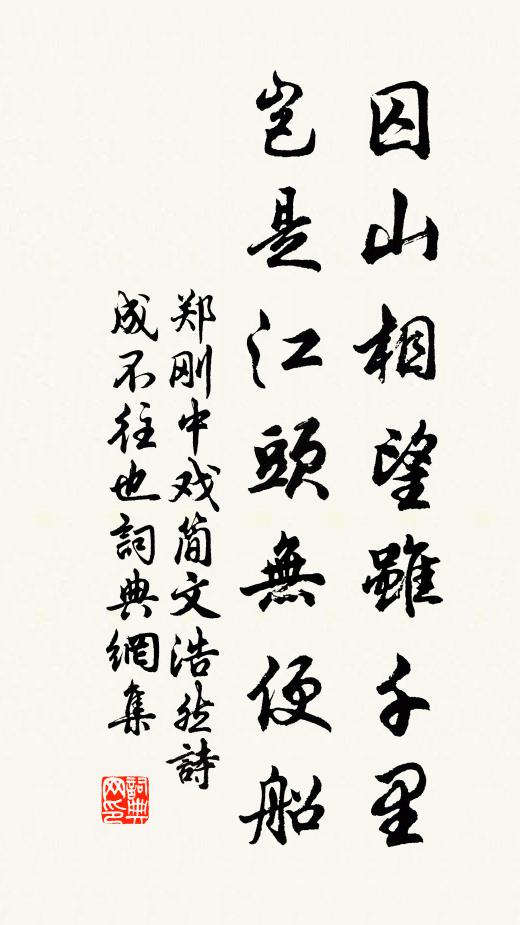 囚山相望雖千里
豈是江頭無便船
郑刚中戏简文浩然詩
成不往也詞典網集
詞典
网印